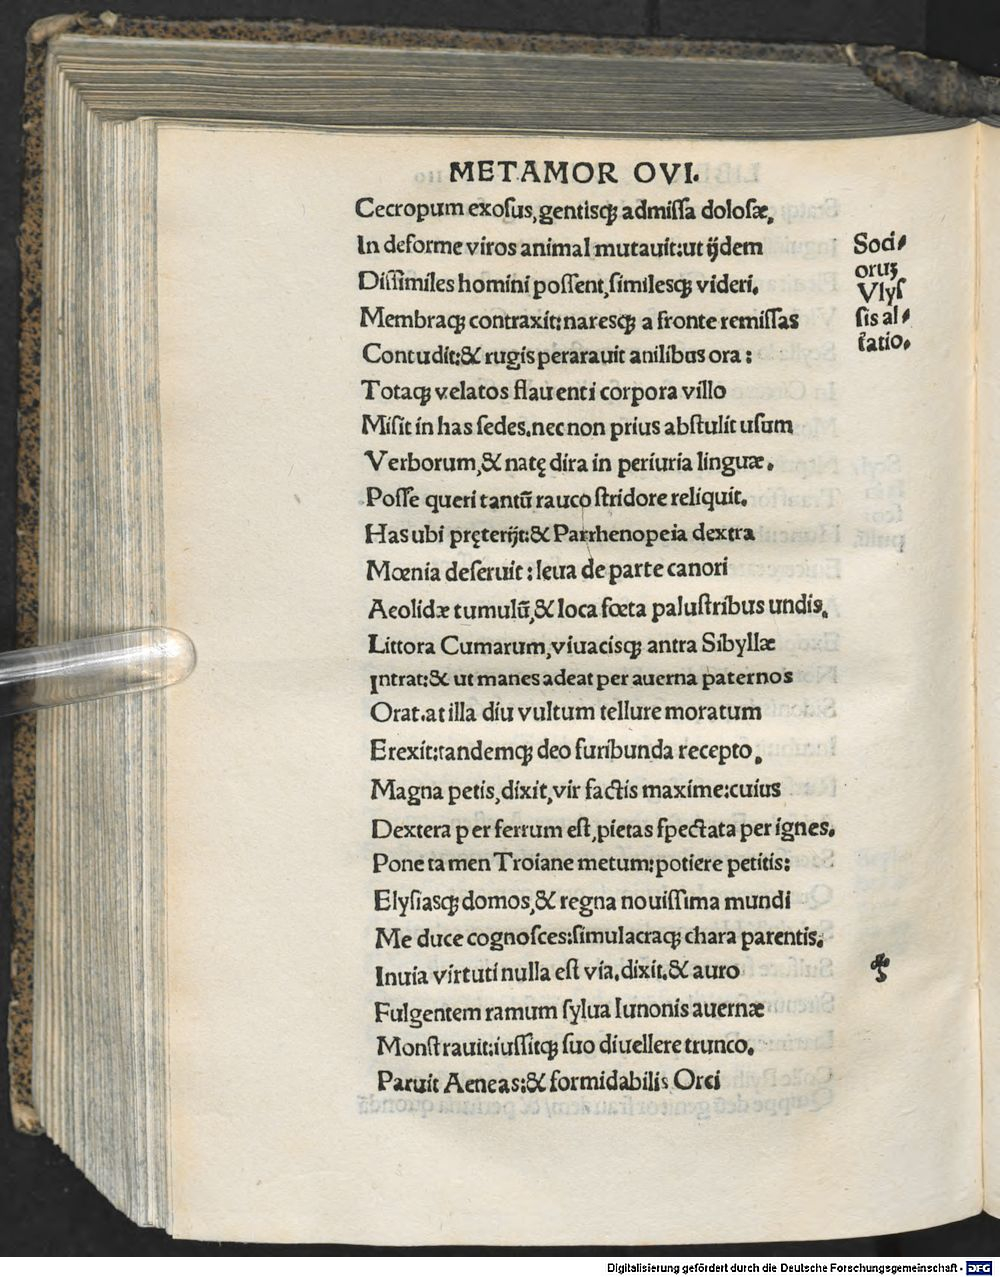 METAMOR OVI.
Cecropum exosus, gentisqꝫ admissa dolosæ,
In deforme viros animal mutauit: ut ijdem
Dissimiles homini possent, similesqꝫ videri.
Membraqꝫ contraxit: naresqꝫ a fronte remissas
Contudit: & rugis perarauit anilibus ora:
Totaqꝫ velatos flauenti corpora villo
Misit in has sedes. nec non prius abstulit usum
Verborum, & natę dira in periuria linguæ.
Posse queri tantũ rauco stridore reliquit.
Has ubi pręterijt: & Parrhenopeia dextra
Mœnia deseruit: leua de parte canori
Aeolidæ tumulũ, & loca fœta palustribus undis,
Littora Cumarum, viuacisqꝫ antra Sibyllæ
Intrat: & ut manes adeat per auerna paternos
Orat. at illa diu vultum tellure moratum
Erexit: tandemqꝫ deo furibunda recepto,
Magna petis, dixit, vir factis maxime: cuius
Dextera per ferrum est, pietas spectata per ignes.
Pone tamen Troiane metum: potiere petitis:
Elysiasqꝫ domos, & regna nouissima mundi
Me duce cognosces: simulacraqꝫ chara parentis.
Inuia virtuti nulla est via. dixit. & auro
Fulgentem ramum sylua Iunonis auernæ
Monstrauit: iussitqꝫ suo diuellere trunco.
Paruit Aeneas: & formidabilis Orci
Soci⸗
oruꝫ
Vlyſ
sis al⸗
tatio.
Digitalisierung gefördert durch die Deutsche Forschungsgemeinschaft - DFG